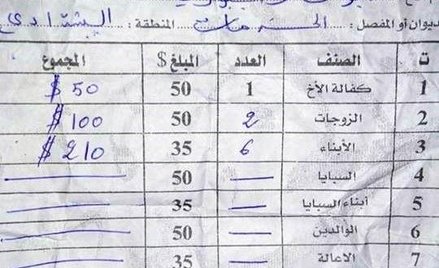 ديوان أو المفصل: المنطقة:
ت الصنف العدد المبلغ $ المجموع
1 كفالة الأخ 1 50 $ 50
2 الزوجات 2 50 $ 100
3 الأبناء 6 35 $ 210
4 السبايا — 50 —
5 أبناء السبايا — 35 —
6 الوالدين — 50 —
7 الاعالة — 35 —